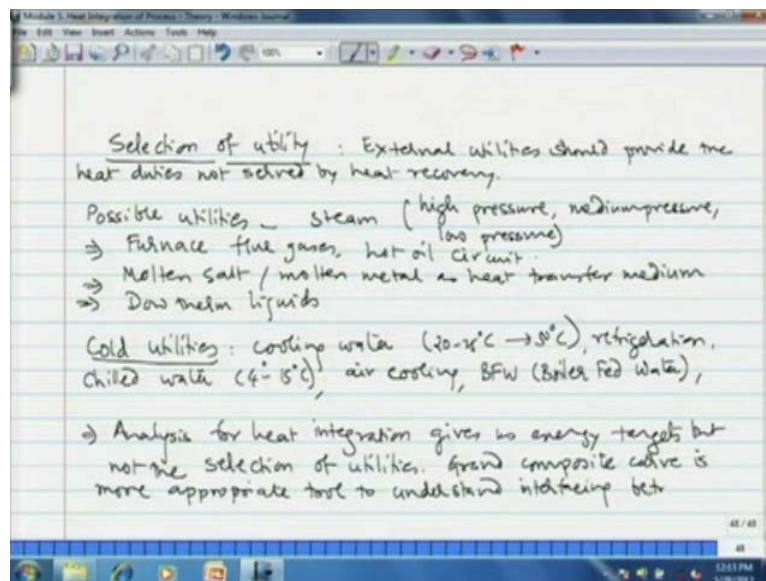 Module 5. Heat Integration of Process - Theory - Windows Journal
File Edit View Insert Actions Tools Help
100%
Selection of utility : External utilities should provide the
heat duties not served by heat recovery.
Possible utilities - steam (high pressure, medium pressure,
low pressure)
⇒ Furnace flue gases, hot oil circuit.
⇒ Molten salt / molten metal as heat transfer medium
⇒ Dow therm liquids
Cold utilities : cooling water (20-25°C → 50°C), refrigeration,
Chilled water (4° - 15°C), air cooling, BFW (Boiler Fed Water),
⇒ Analysis for heat integration gives us energy targets but
not the selection of utilities. Grand composite curve is
more appropriate tool to understand interfacing betn
48 / 48
48
12:03 PM